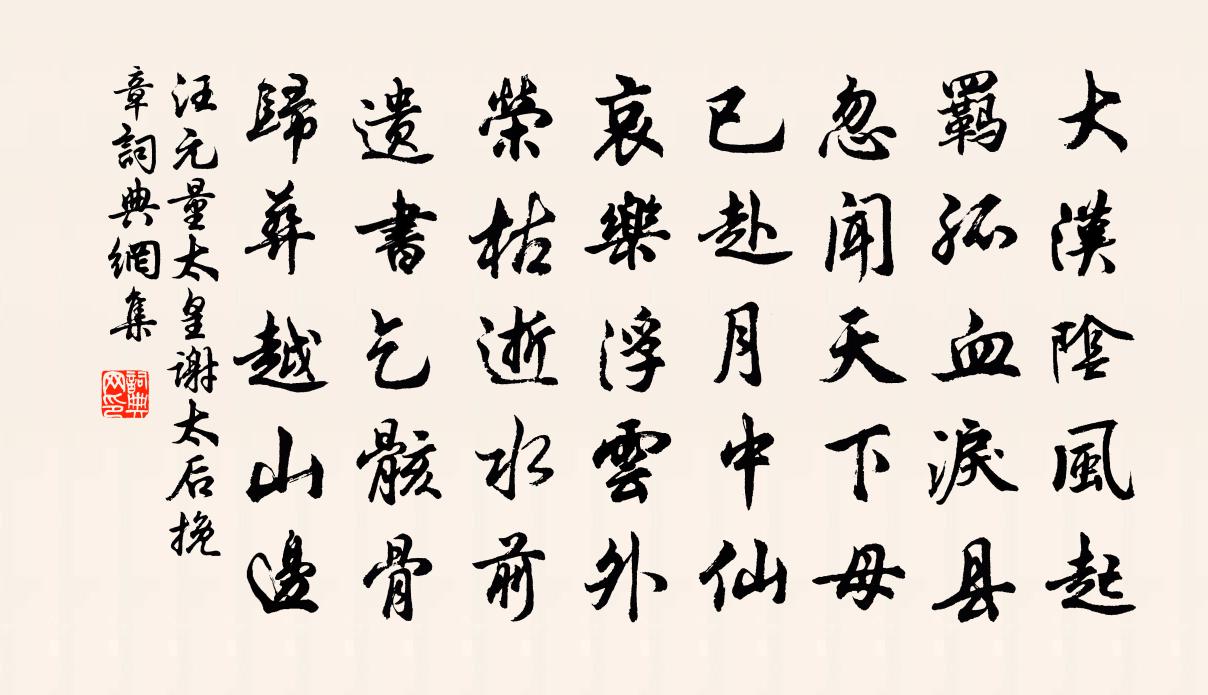 大漠陰風起
羈孤血淚县
忽聞天下母
已赴月中仙
哀樂浮雲外
榮枯逝水前
遗書乞骸骨
歸葬越山邊
汪元量太皇谢太后挽
章詞典網集
詞典網印